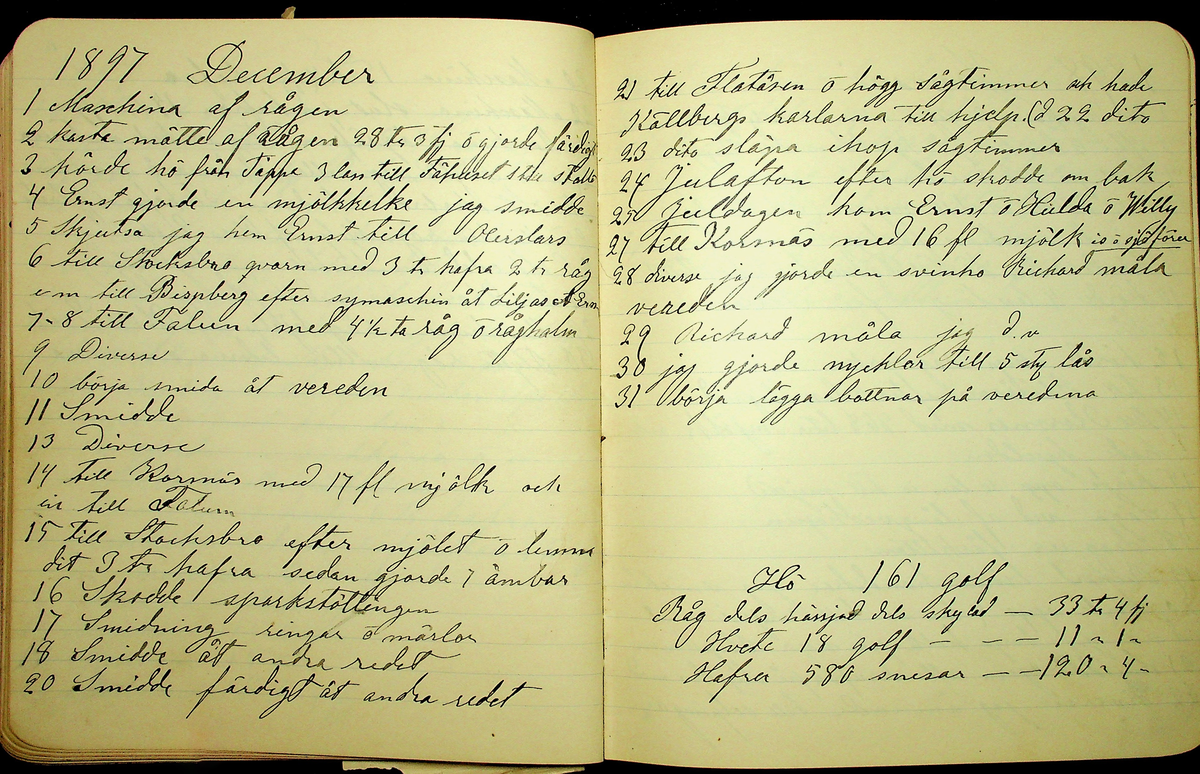 1897 December
1 Maschina af rågen
2 kasta mätte af rågen 28 tr 3 fj o gjorde färdigt
3 körde hö från Täppe 3 las till Fähuset
4 Ernst gjorde en mjölkkelke jag smidde
5 Skjutsa jag hem Ernst till Olerslars
6 till Stocksbro qvarn med 3 tr hafra 2 tr råg
em till Bispberg efter symaschin åt Liljas
7-8 till Falun med 4½ tr råg o råghalm
9 Diverse
10 börja smida åt vereden
11 Smidde
13 Diverse
14 till Korsnäs med 17 fl mjölk och
in till Falun
15 till Stocksbro efter mjölet o lemna
dit 3 tr hafra sedan gjorde 7 ämbar
16 Skodde sparkstöttengen
17 Smidning ringar o märlor
18 Smidde åt andra redet
20 Smidde färdigt åt andra redet
21 till Flatåsen o högg sågtimmer ock hade
Källbergs karlarna till hjelp. (d 22 dito
23 dito släpa ihop sågtimmer
24 Julafton efter hö skodde om bak
25 Juldagen kom Ernst o Hulda o Willy
27 till Korsnäs med 16 fl mjölk is o sjöförer
28 diverse jag gjorde en svinho Richard måla
vereden
29 Richard måla jag d.v
30 jag gjorde nycklor till 5 sty lås
31 börja lägga bottnar på veredena
Hö 161 golf
Råg dels hässjad dels skylad — 33 tr 4 fj
Hvete 18 golf — — — 11 " 1 "
Hafra 580 snesar — — 120 " 4 "